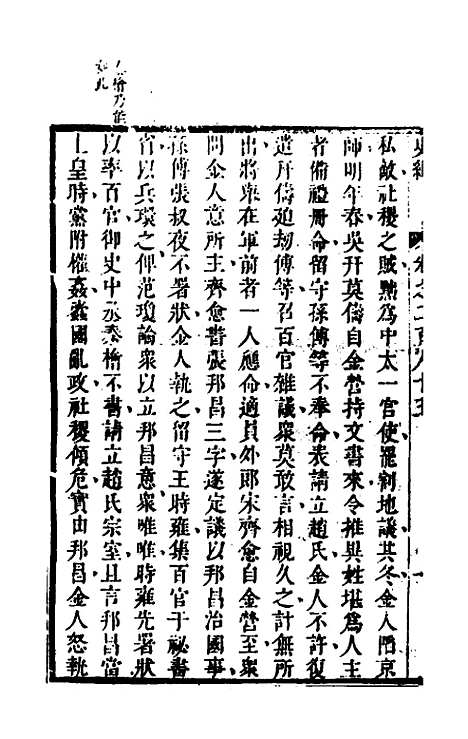 私敵社稷之賊黜爲中太一宮使罷割地議其冬金人陷京
師明年春吳幵莫儔自金營持文書來令推異姓堪爲人主
者備禮冊命留守孫傅等不奉命表請立趙氏金人不許復
遣幵儔廹劫傅等召百官雜議衆莫敢言相視久之計無所
出將舉在軍前者一人應命適員外郎宋齊愈自金營至衆
問金人意所主齊愈書張邦昌三字遂定議以邦昌治國事
孫傅張叔夜不署狀金人執之留守王時雍集百官于祕書
省以兵環之俾范瓊諭衆以立邦昌意衆唯唯時雍先署狀
以率百官御史中丞秦檜不書請立趙氏宗室且言邦昌當
上皇時黨附權姦蠹國亂政社稷傾危實由邦昌金人怒執
史緯
檜乃能
如此